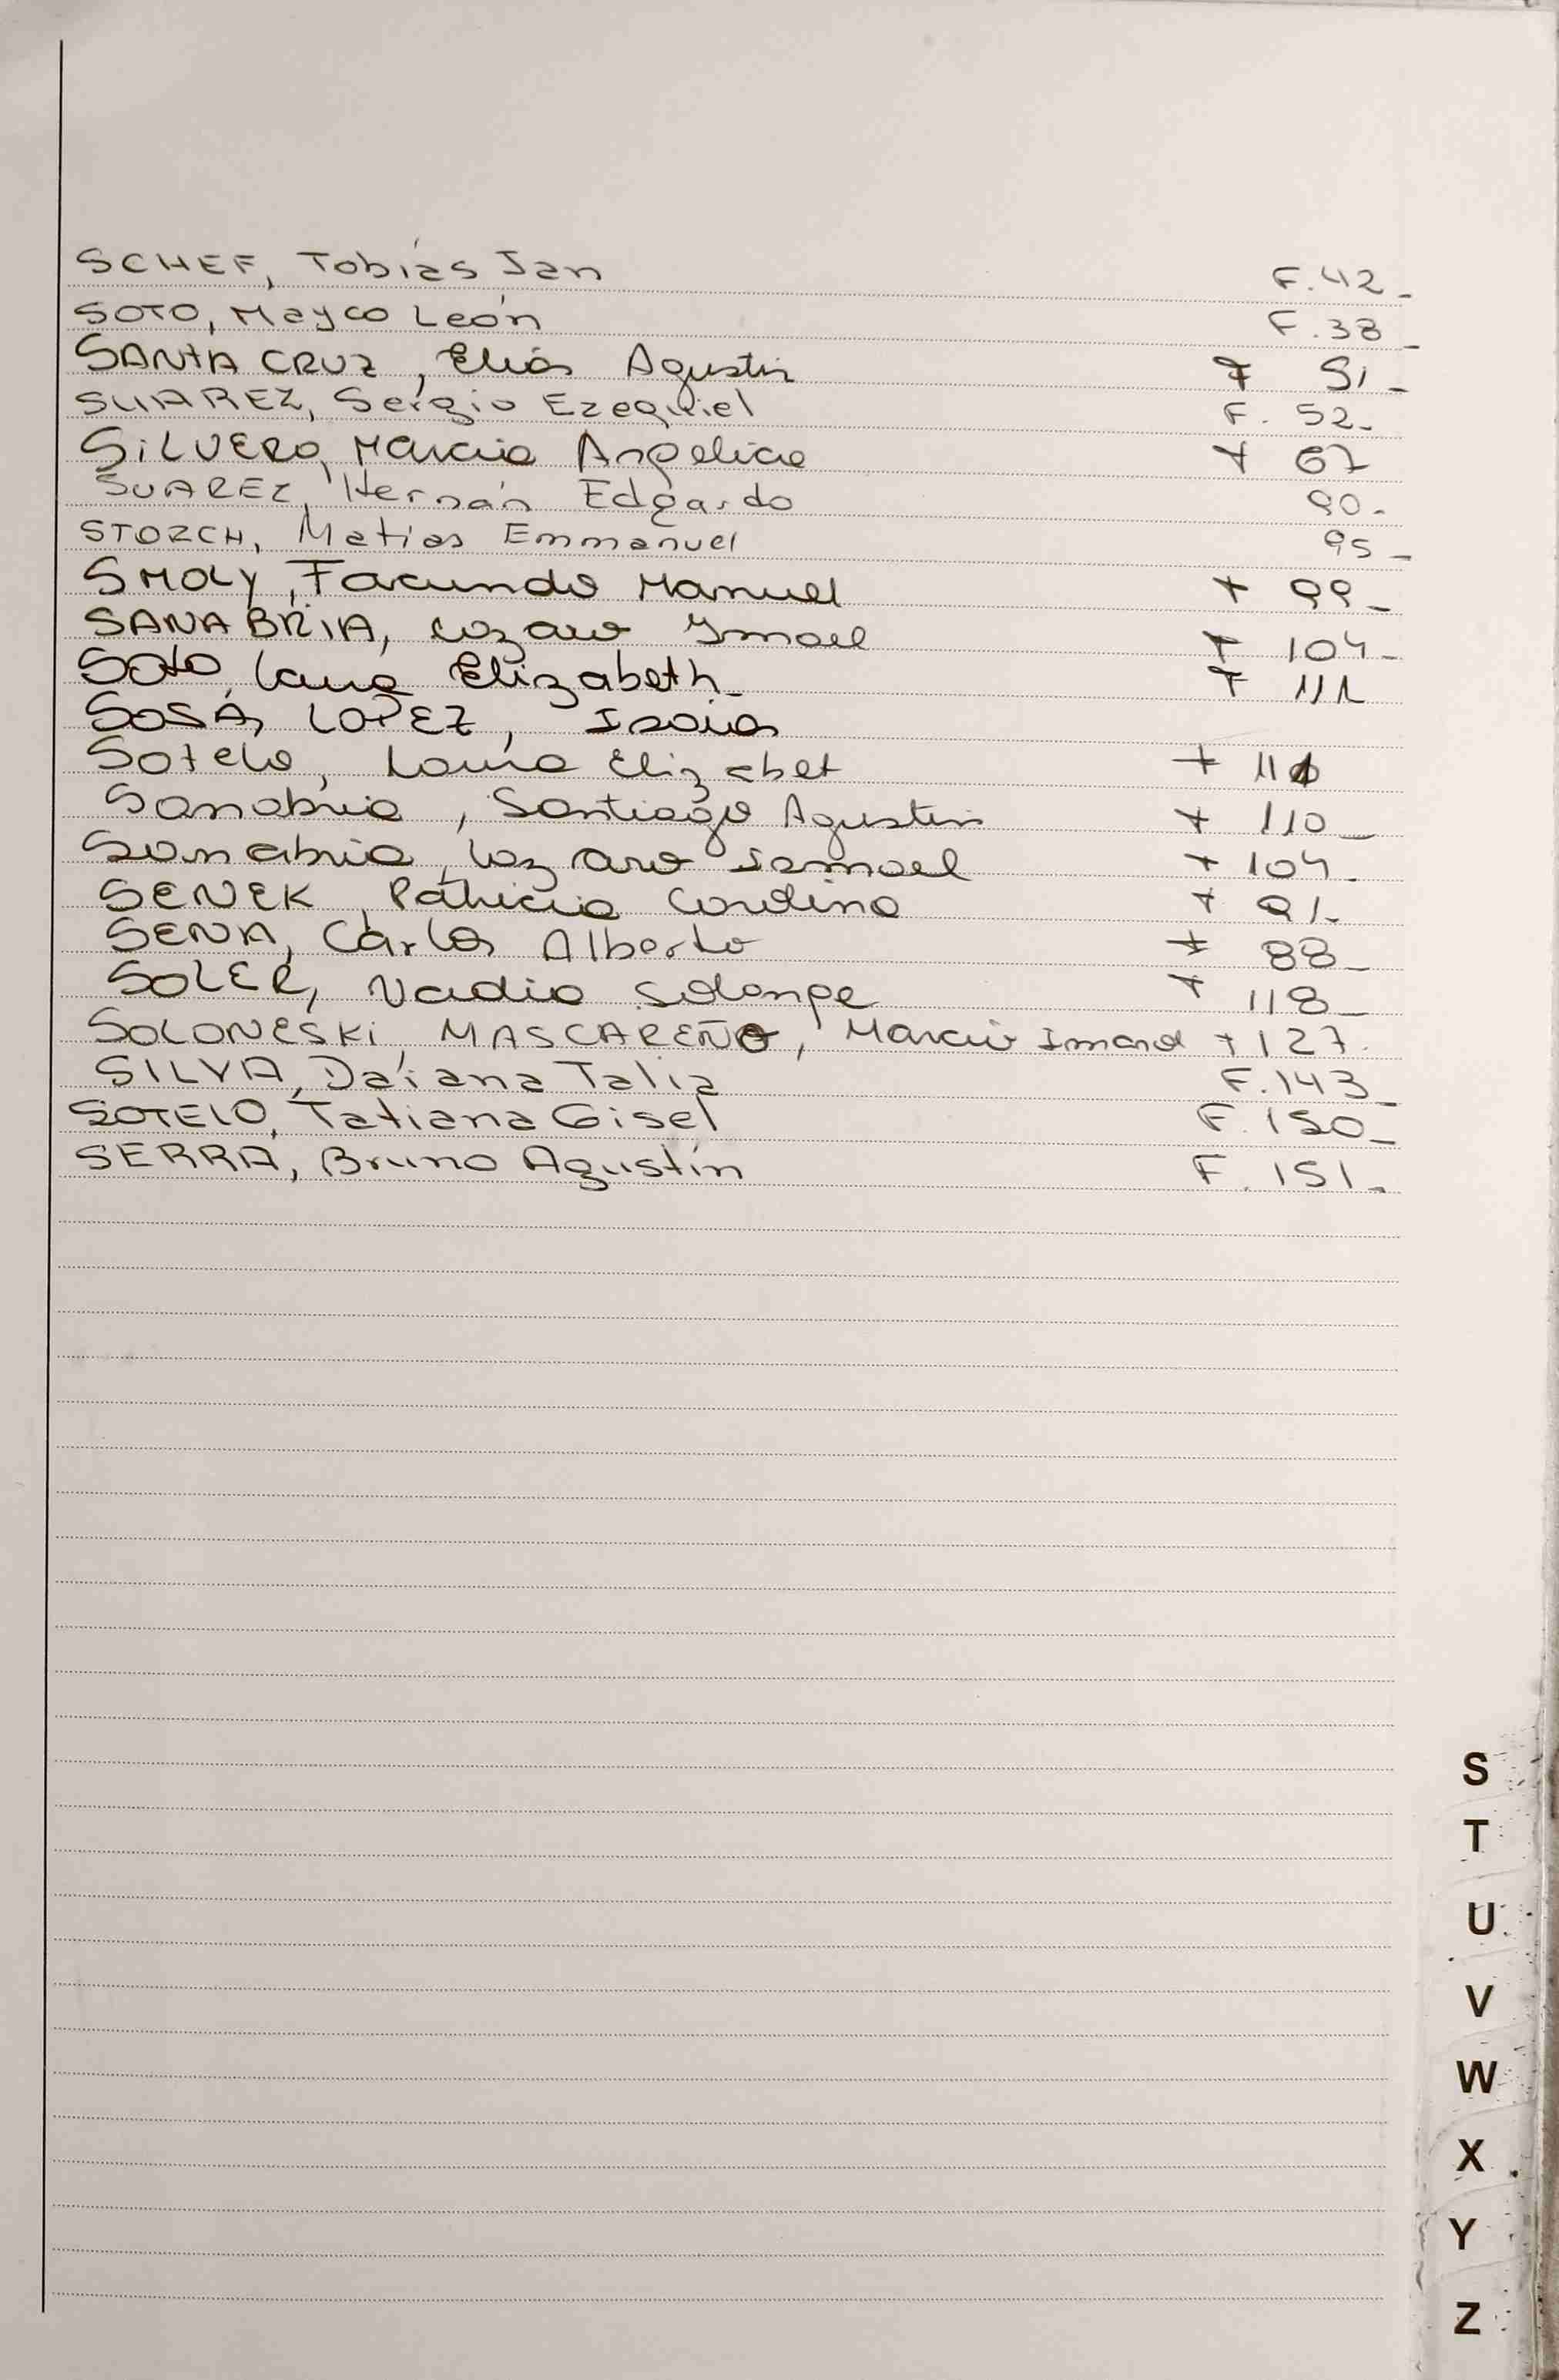 SCHEF, Tobías Jan F. 42_
SOTO, Mayco León F. 38_
SANTA CRUZ, Elias Agustin F 51_
SUAREZ, Sergio Ezequiel F. 52_
SILVERO, Marcia Angelica F 67
SUAREZ, Hernán Edgardo 90_
STORCH, Matias Emmanuel 95_
SMOLY, Facundo Manuel F 99_
SANABRIA, Lazaro Ismael F 104_
Soto, Laura Elizabeth_ F 111
SOSA, LOPEZ, Isaias
Sotelo, Laura Elizabet F 111
Sanabria, Santiago Agustin F 110_
Sanabria, Lazaro Ismael F 104_
SENEK, Patricia Carolina F 91_
SENA, Carlos Alberto F 88_
SOLER, Nadia Solange F 118_
SOLONESKI, MASCAREÑO, Marcio F 127_
SILVA, Daiana Talia F. 143_
SOTELO, Tatiana Gisel F. 150_
SERRA, Bruno Agustín F. 151_
S
T
U
V
W
X
Y
Z